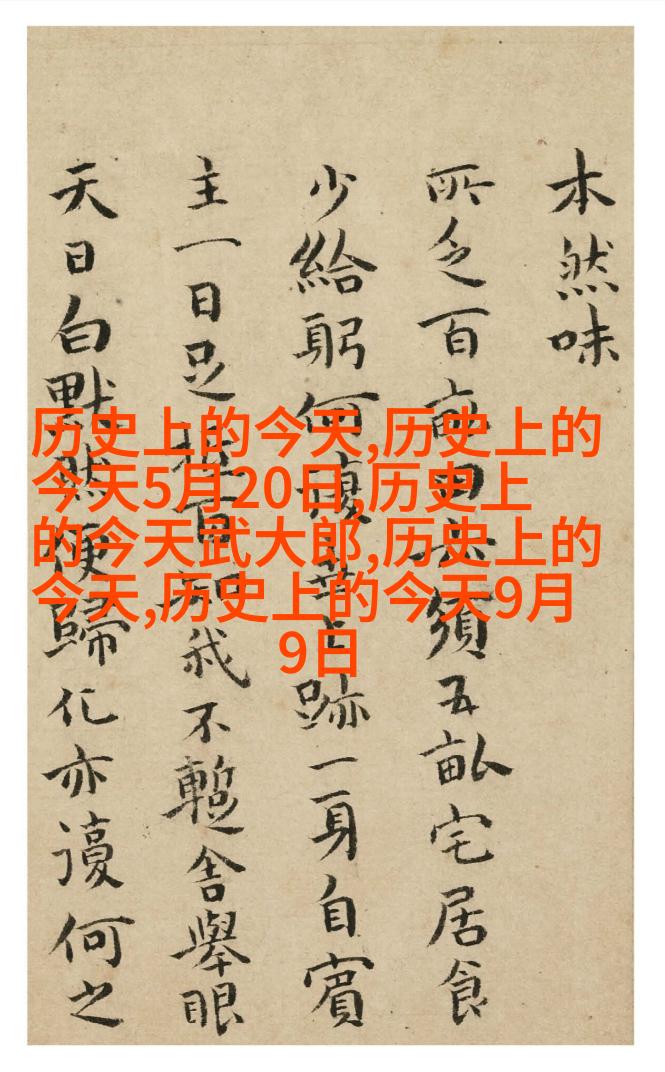 本然味
所乏百畝田須五畝宅居食
少給躬何跡一身自賓
主一日足百知我不暫舍舉眼
天日白默然便歸化亦何之
历史上的今天,历史上的
今天5月20日,历史上
的今天武大郎,历史上的
今天,历史上的今天9月
9日